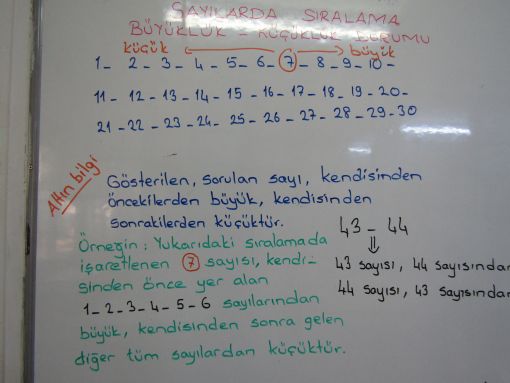 SAYILARDA SIRALAMA
BÜYÜKLÜK - KÜÇÜKLÜK DURUMU
küçük büyük
1- 2- 3- 4- 5- 6- 7- 8- 9- 10-
11- 12- 13- 14- 15- 16- 17- 18- 19- 20-
21- 22- 23- 24- 25- 26- 27- 28- 29- 30
Altın bilgi
Gösterilen, sorulan sayı, kendisinden
öncekilerden büyük, kendisinden
sonrakilerden küçüktür.
Örneğin: Yukarıdaki sıralamada
işaretlenen 7 sayısı, kendi-
sinden önce yer alan
1-2-3-4-5-6 sayılarından
büyük, kendisinden sonra gelen
diğer tüm sayılardan küçüktür.
43 - 44
⇓
43 sayısı, 44 sayısından
44 sayısı, 43 sayısından